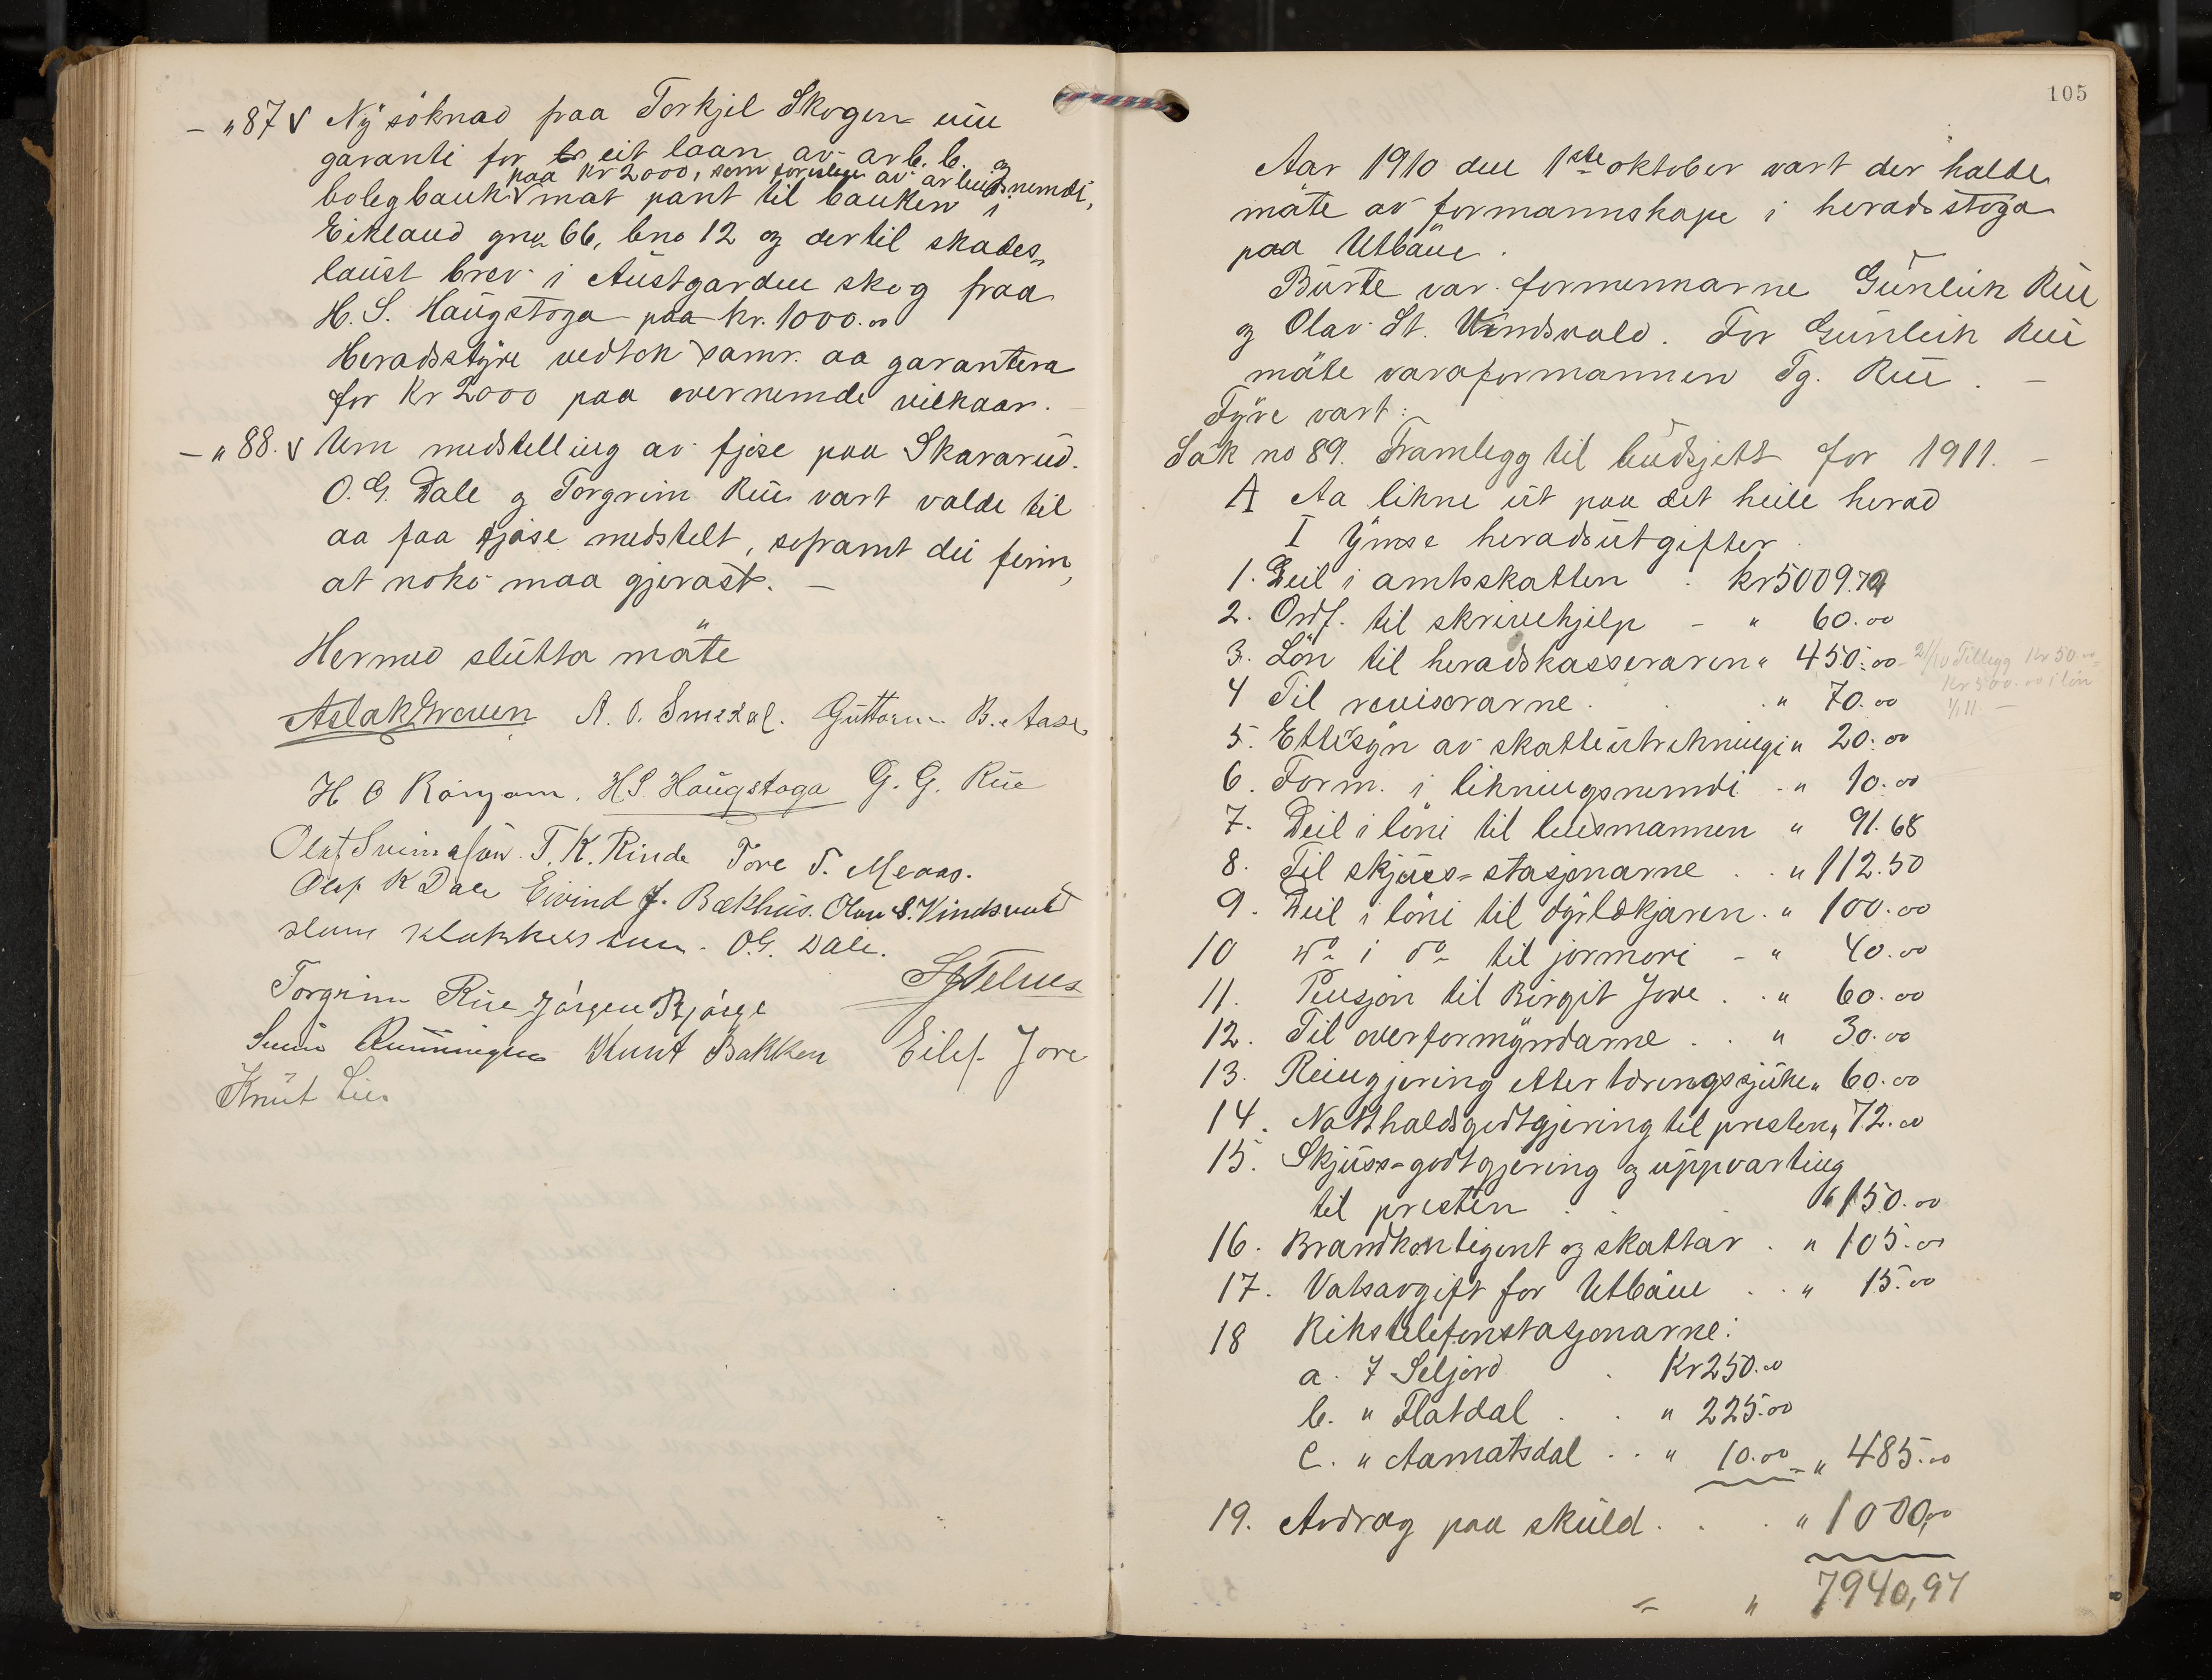 - " 87 V Ny söknad fraa Torkjel Skogen um
garanti for eit laan av arb. b. og
paa Kr 2000, som av arbeidsnemdi,
bolegbank V mat pant til banken i
Eikland gno 66, bno 12 og dertil skades-
laust brev i Austgarden skog fraa
H. S. Haugstoga paa kr. 1000.00
Heradsstyre vedtok samr. aa garantera
for Kr 2000 paa overnemde vilkaar.
- " 88. V Um nedstelling av fjøse paa Skararud.
O. G. Dale og Torgrim Rue vart valde til
aa faa fjøse nedstelt, soframt dei finn,
at noko maa gjerast. -
Hermed slutta møte
Aslak Graven A. O. Smedal. Guttorm B. Aase
H O H.S. Haugstoga G. G. Rue
Olaf Sveinsson. T. K. Rinde Tore T. Meaas.
Olaf K Dale Eivind J. Bækhus. Olav S. Vindsvald
O.G. Dale.
Torgrim Rue Jörgen Bjørge
Knut Bakken Eilef Jore
Knut Lie
105
Aar 1910 den 1ste oktober vart der halde
möte av formannskape i heradsstoga
paa Utbøen.
Burte var formennarne Gunleik Rue
og Olav St. Vindsvald. For Gunleik Rue
møte varaformannen Tg. Rue. -
Fyre vart:
Sak no 89. Framlegg til budsjett for 1911. -
A Aa likne ut paa det heile herad
I Ymse heradsutgifter.
1. Deil i amtsskatten . kr 5009.79
2. Ordf. til skrivehjelp - " 60.00
3. Løn til heradskasseraren " 450.00 21/10 Tillegg Kr 50.00 =
Kr 500.00 i løn
4 Til revisorarne . . . " 70.00 1/1 11. -
5. Ettesyn av skatteutrekningi " 20.00
6. Form. i likningsnemdi . " 10.00
7. Deil i løni til lensmannen " 91.68
8. Til skjuss-stasjonarne . . " 112.50
9. Deil i løni til dyrlækjaren . " 100.00
10 Do i do til jormori - " 40.00
11. Pensjon til Birgit Jore . . " 60.00
12. Til overformyndarne . . " 30.00
13. Reingjering etter tæringssjuke " 60.00
14. Natthaldsgodtgjering til presten " 72.00
15. Skjuss-godtgjering og uppvarting
til presten . . . " 150.00
16. Brandkontigent og skattar . " 105.00
17. Vatsavgift for Utbøen . . " 15.00
18 Rikstelefonstasjonarne:
a. I Seljord . Kr 250.00
b. " Flatdal . . " 225.00
c. " Aamotsdal . . " 10.00 = " 485.00
19. Avdrag paa skuld . . . " 1000,00
= " 7940,97